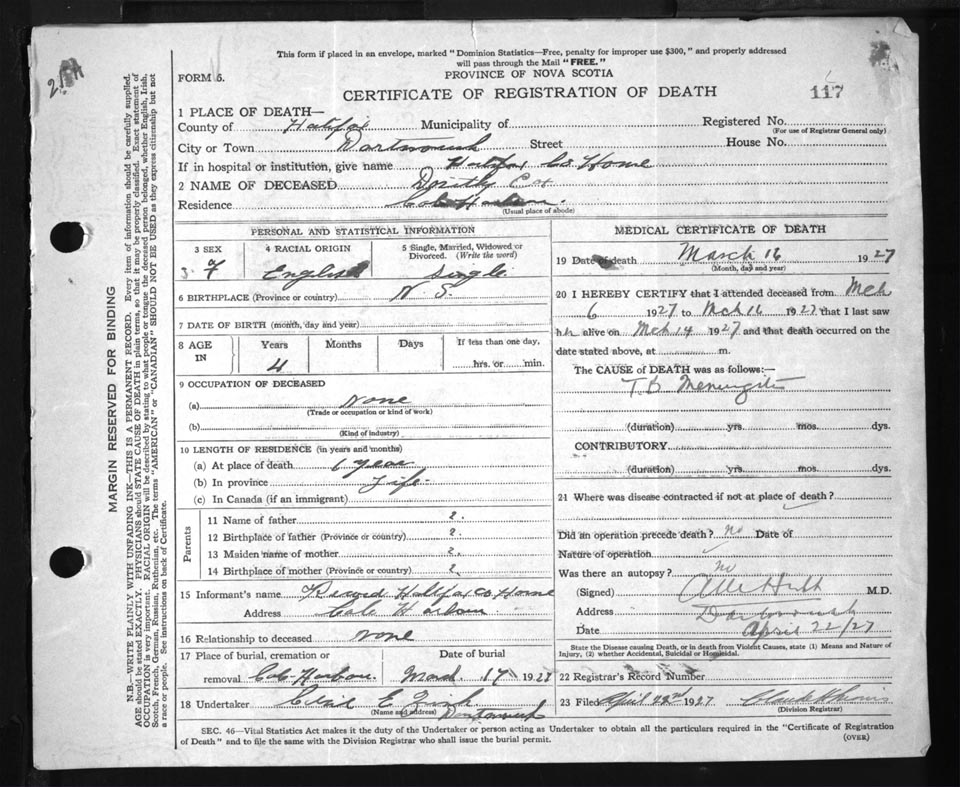 This form if placed in an envelope, marked "Dominion Statistics—Free, penalty for improper use $300," and properly addressed
will pass through the Mail "FREE."
FORM 5.
PROVINCE OF NOVA SCOTIA
CERTIFICATE OF REGISTRATION OF DEATH
117
1 PLACE OF DEATH—
County of Halifax Municipality of Registered No.
(For use of Registrar General only)
City or Town Dartmouth Street House No.
If in hospital or institution, give name Halifax Co. Home
2 NAME OF DECEASED Cox
Residence Cole Harbour
(Usual place of abode)
PERSONAL AND STATISTICAL INFORMATION
3 SEX 4 RACIAL ORIGIN 5 Single, Married, Widowed or Divorced. (Write the word)
F English Single
6 BIRTHPLACE (Province or country) N. S.
7 DATE OF BIRTH (month, day and year)
8 AGE IN Years Months Days If less than one day,
4 hrs. or min.
9 OCCUPATION OF DECEASED
(a) None
(Trade or occupation or kind of work)
(b)
(Kind of industry)
10 LENGTH OF RESIDENCE (in years and months)
(a) At place of death 1 year
(b) In province Life
(c) In Canada (if an immigrant)
Parents
11 Name of father ?
12 Birthplace of father (Province or country) ?
13 Maiden name of mother ?
14 Birthplace of mother (Province or Country) ?
15 Informant's name Record Halifax Co Home
Address Cole Harbour
16 Relationship to deceased none
17 Place of burial, cremation or Date of burial
removal Cole Harbour March 17 1927
18 Undertaker E
(Name and address) Dartmouth
MEDICAL CERTIFICATE OF DEATH
19 Date of death March 16 1927
(Month, day and year)
20 I HEREBY CERTIFY that I attended deceased from Mch
6 1927 to Mch 16 1927 that I last saw
her alive on Mch 14 1927 and that death occurred on
date stated above, at m.
The CAUSE of DEATH was as follows:—
T B Meningitis
(duration) yrs. mos. dys.
CONTRIBUTORY
(duration) yrs. mos. dys.
21 Where was disease contracted if not at place of death?
Did an operation precede death? No Date of
Nature of operation
Was there an autopsy? No
(Signed) M.D.
Address Dartmouth
Date April 22/27
State the Disease causing Death, or in Death from Violent Causes, state (1) Means and Nature of
Injury, (2) whether Accidental, Suicidal or Homicidal.
22 Registrar's Record Number
23 Filed April 22nd 1927
(Division Registrar)
SEC. 46—Vital Statistics Act makes it the duty of the Undertaker or person acting as Undertaker to obtain all the particulars required in the "Certificate of Registration
of Death" and to file the same with the Division Registrar who shall issue the burial permit. (OVER)
MARGIN RESERVED FOR BINDING
N.B.—WRITE PLAINLY WITH UNFADING INK—THIS IS A PERMANENT RECORD. Every item of information should be carefully supplied.
AGE should be stated EXACTLY. PHYSICIANS should STATE CAUSE OF DEATH in plain terms, so that it may be properly classified. Exact statement of
OCCUPATION is very important. RACIAL ORIGIN will be described by stating to what people or tongue the deceased person belonged, whether English, Irish,
Scotch, French, German, Russian, Ruthenian, etc. The terms "AMERICAN" or "CANADIAN" SHOULD NOT BE USED as they express citizenship but not
a race or people. See instructions on back of Certificate.